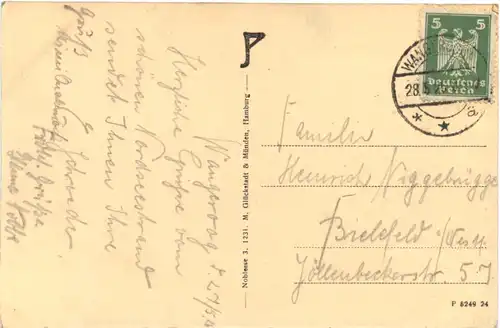 Wangeroog d. 27/5.
Herzliche Grüße vom
schönen Nordseestrand
sendet Ihnen Ihre
Schroeder
Gruß
viele Grüße
P
Noblesse 3. 1231. M. Glückstadt & Münden, Hamburg
5 5
Deutsches
Reich
WANG
28.5.2
* *
a
Familie
Heinrich Niggebrügge
Bielefeld i/Westf.
Jöllenbeckerstr. 57
P 8249 24